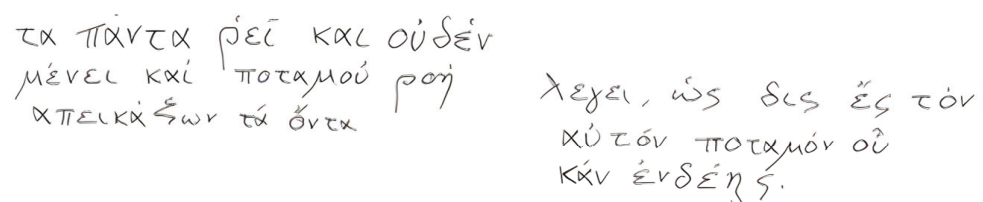 τα πάντα ῥεῖ και οὐδέν
μένει καί ποταμού ροή
απεικάξων τά ὄντα
λεγει, ὡς δις ἔς τόν
αὐτόν ποταμόν οὖ
κάν ἐνδέης.